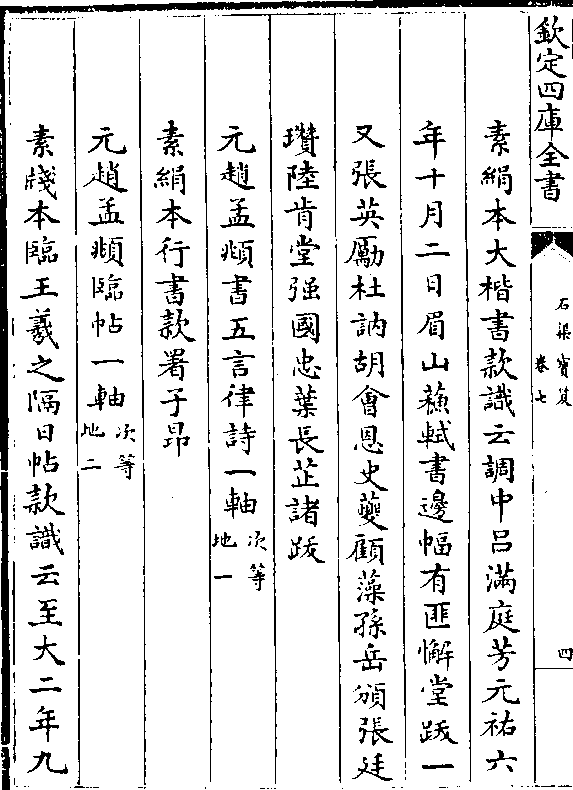 欽定四庫全書
石渠寶笈
卷七
四
素絹本大楷書款識云調中呂滿庭芳元祐六
年十月二日眉山蘓軾書邊幅有匪懈堂跋一
又張英勵杜訥胡會恩史夔顧藻孫岳頒張廷
瓚陸肯堂强國忠葉長芷諸跋
元趙孟頫書五言律詩一軸次等地一
素絹本行書款署子昂
元趙孟頫臨帖一軸次等地二
素牋本臨王羲之隔日帖款識云至大二年九